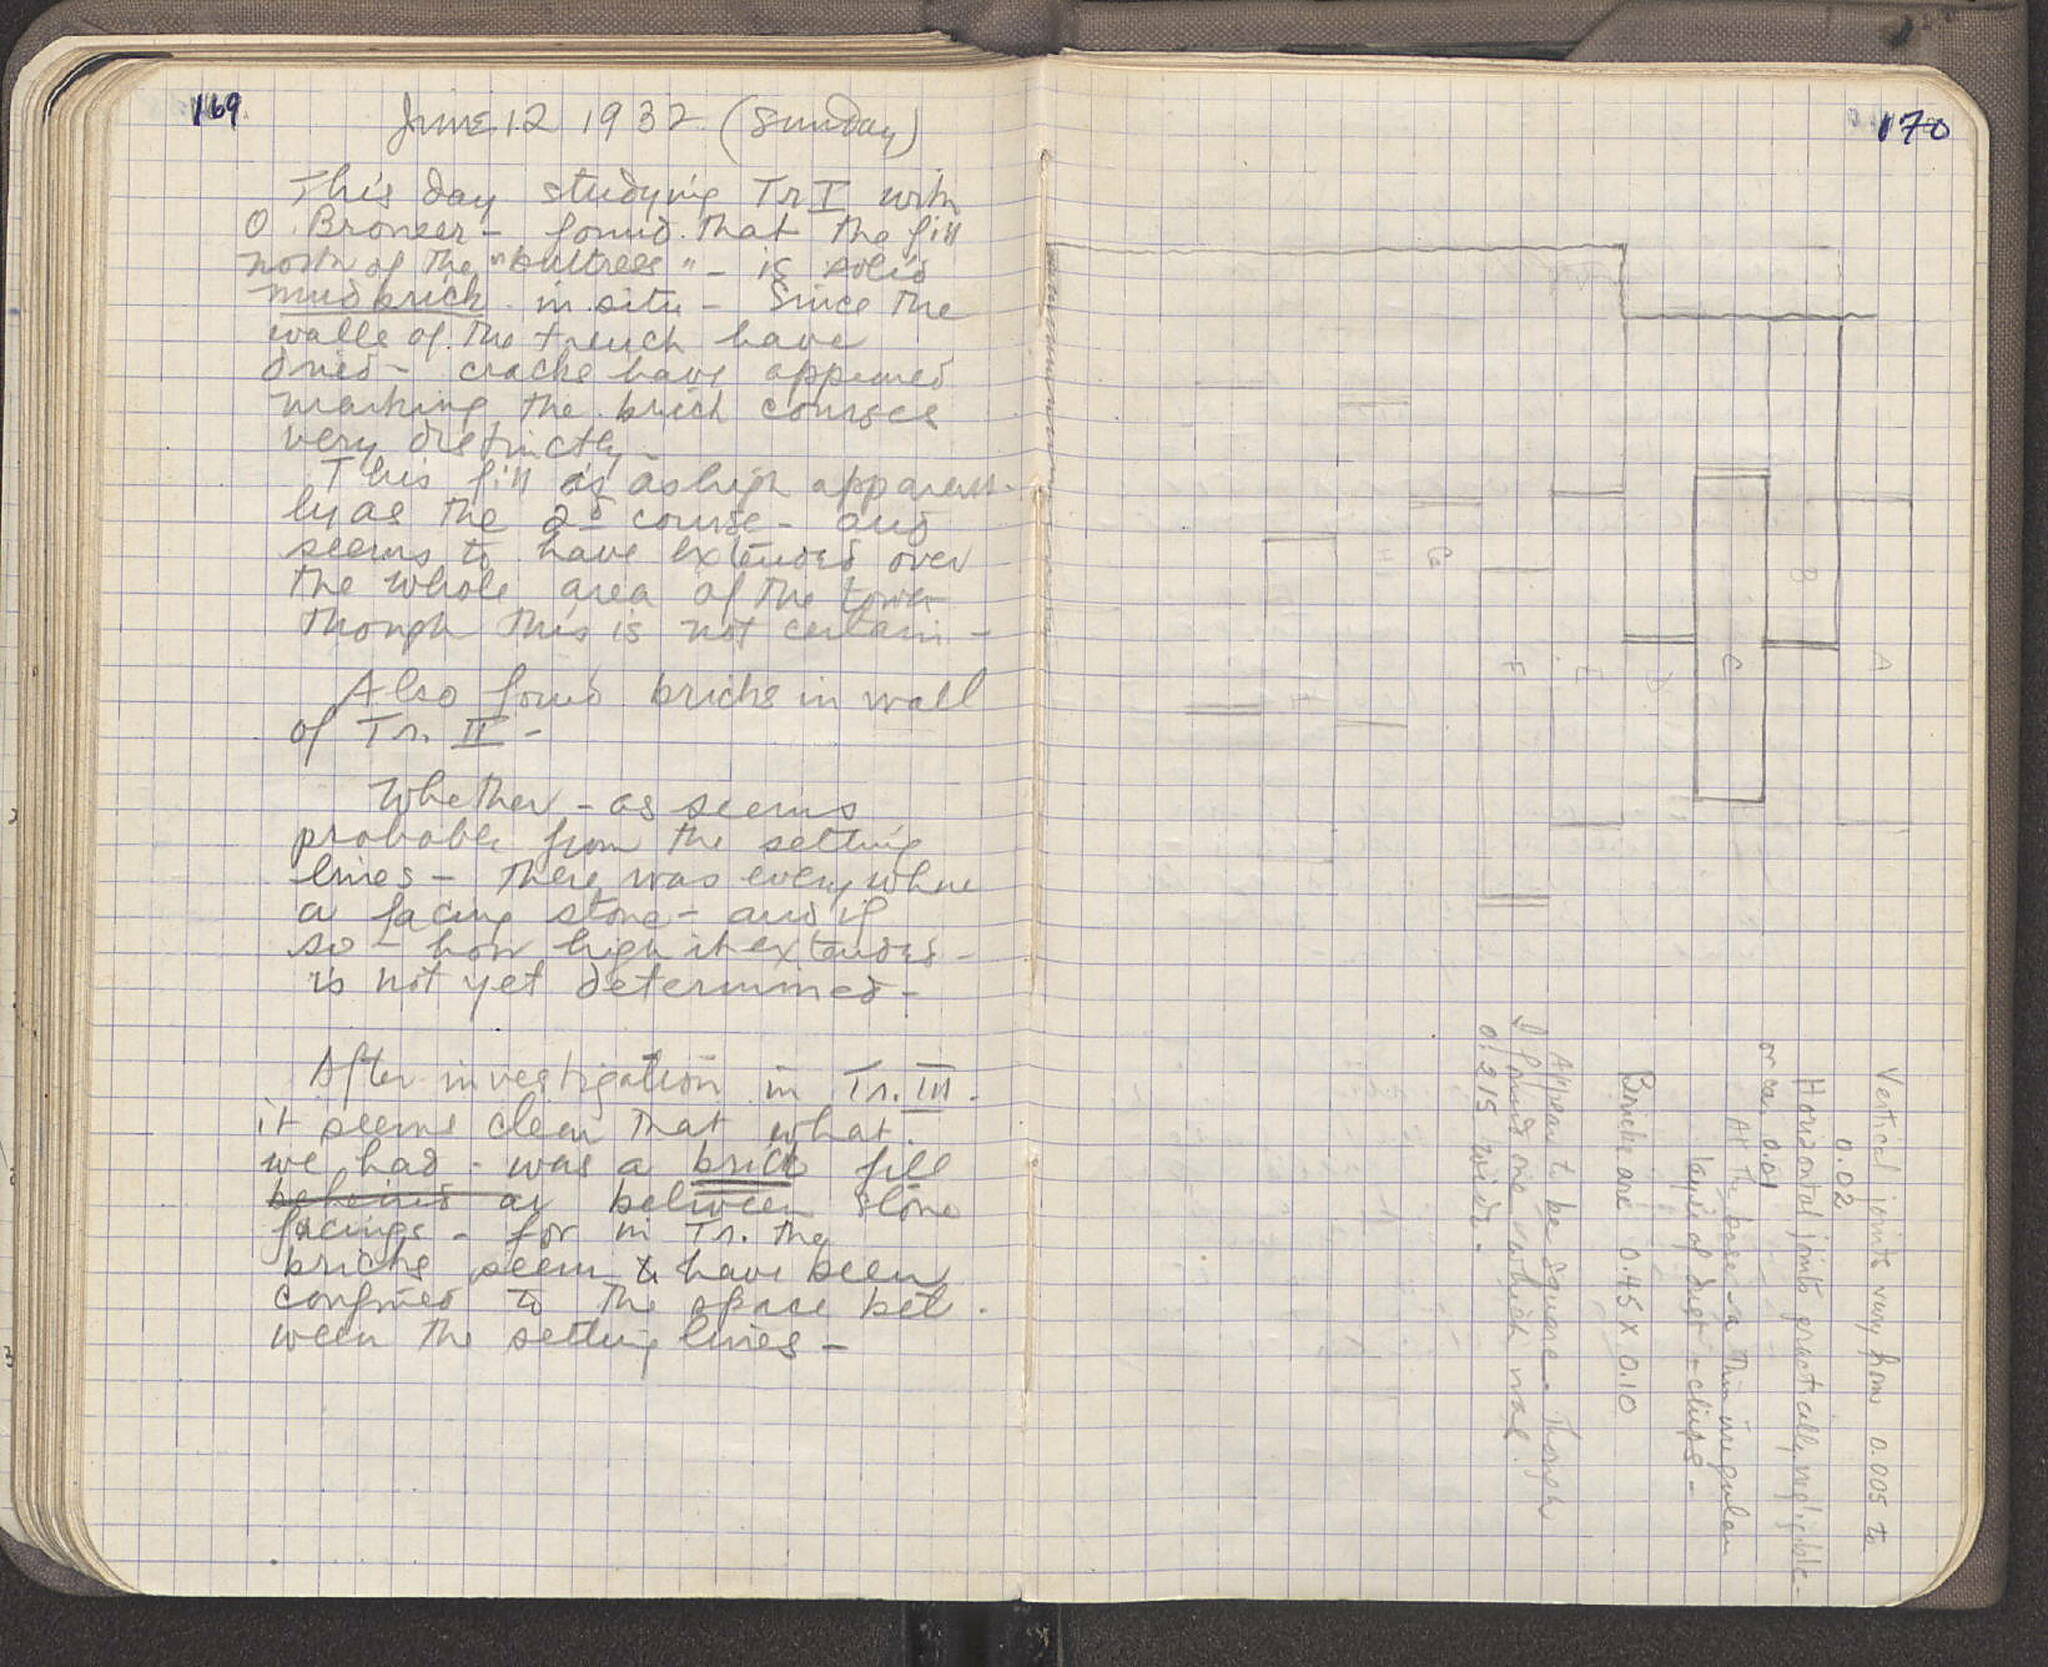 169
June 12 1932 (Sunday)
This day studying Tr I with
O. Broneer - found that the fill
north of the "buttress" - is solid
mud brick in situ - Since the
walls of the trench have
dried - cracks have appeared
marking the brick courses
very distinctly -
This fill is as high apparent-
ly as the 2d course - and
seems to have extended over
the whole area of the tower
though this is not certain -
Also found bricks in wall
of Tr. II -
Whether - as seems
probable from the setting
lines - there was everywhere
a facing stone - and if
so - how high it extended -
is not yet determined -
After investigation in Tr. III -
it seems clear that what
we had - was a brick fill
behind or between stone
facings - for in Tr. the
bricks seem to have been
confined to the space bet
ween the setting lines -
170
A
B
C
D
E
F
G
H
Vertical joints vary from 0.005 to
0.02
Horizontal joints practically negligible -
or ca. 0.01
At the base is a thin irregular
layer of dust - chips -
Bricks are 0.45 x 0.10
Appear to be square - though
I found one which was
0.215 wide -